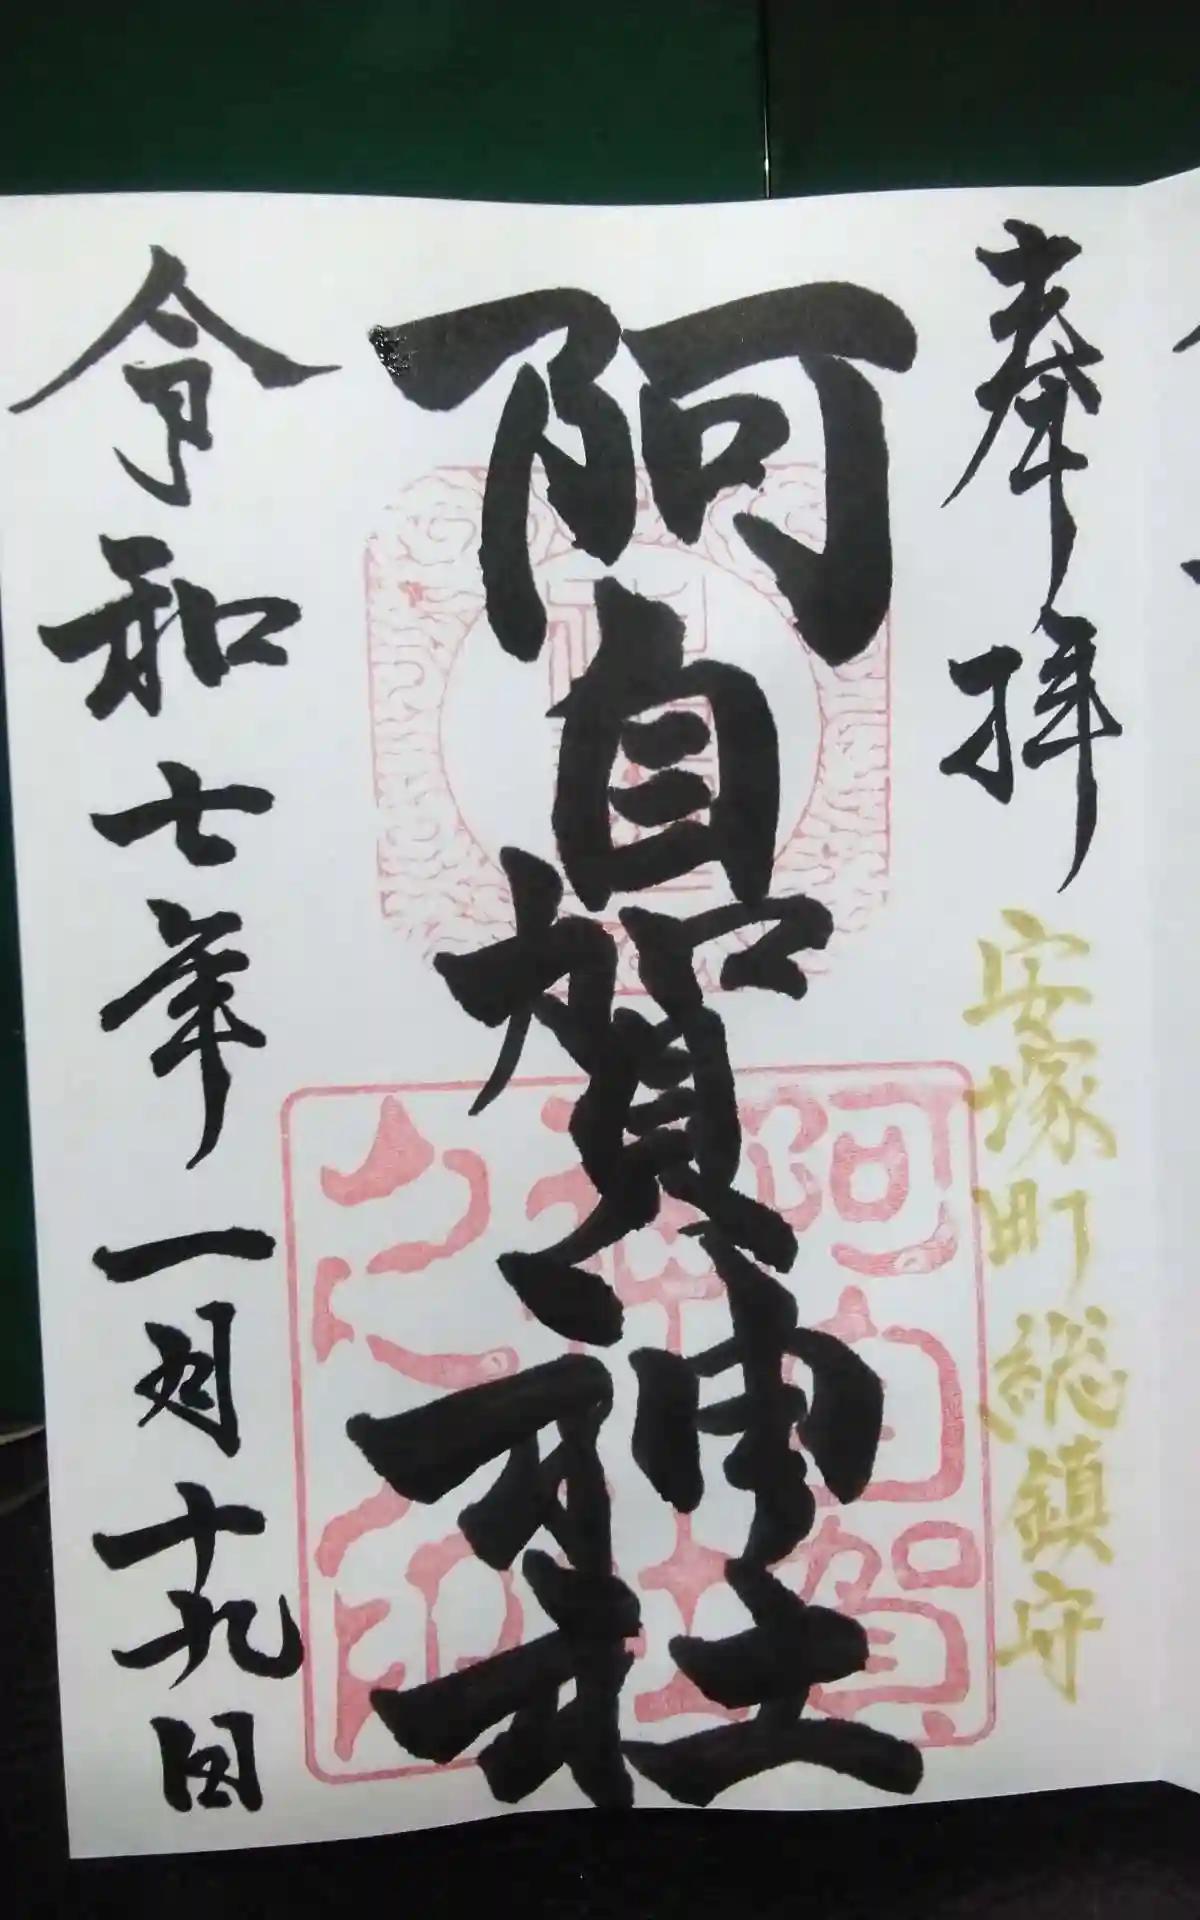 奉拝
安塚町総鎮守
阿自賀神社
阿自賀
神社
令和七年一月十九日